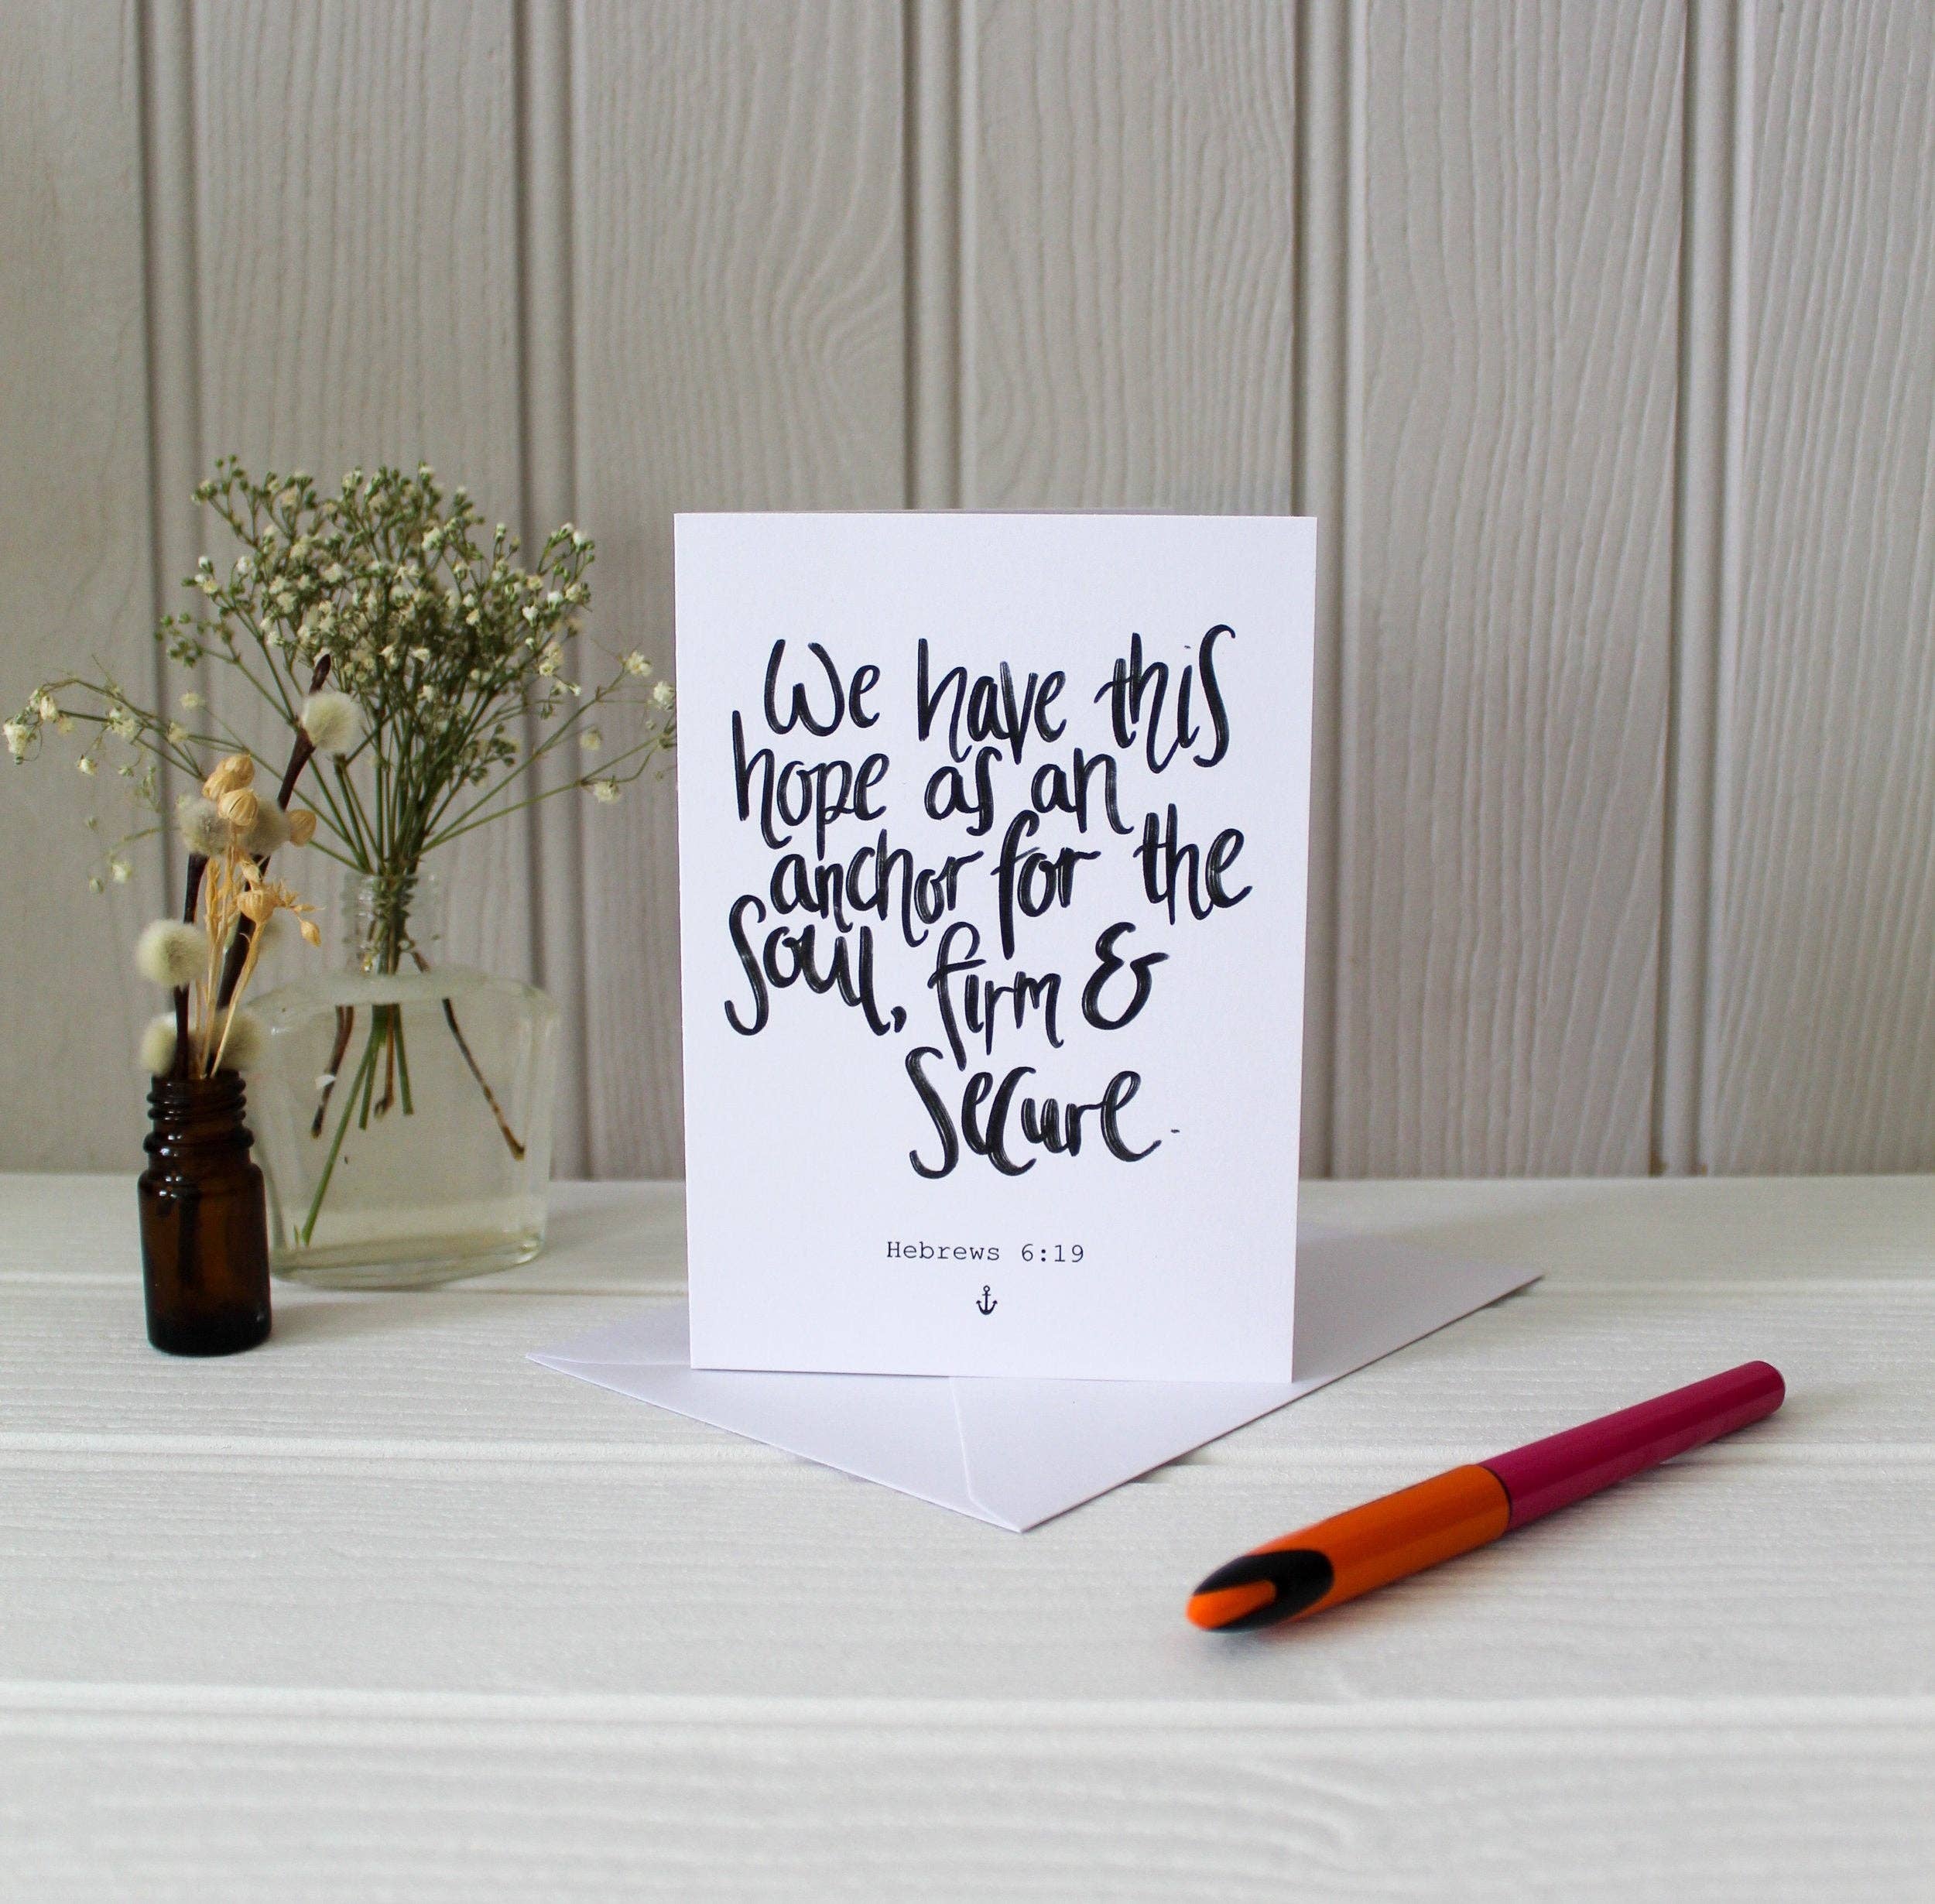 We have this
hope as an
anchor for the
Soul, firm &
Secure.
Hebrews 6:19